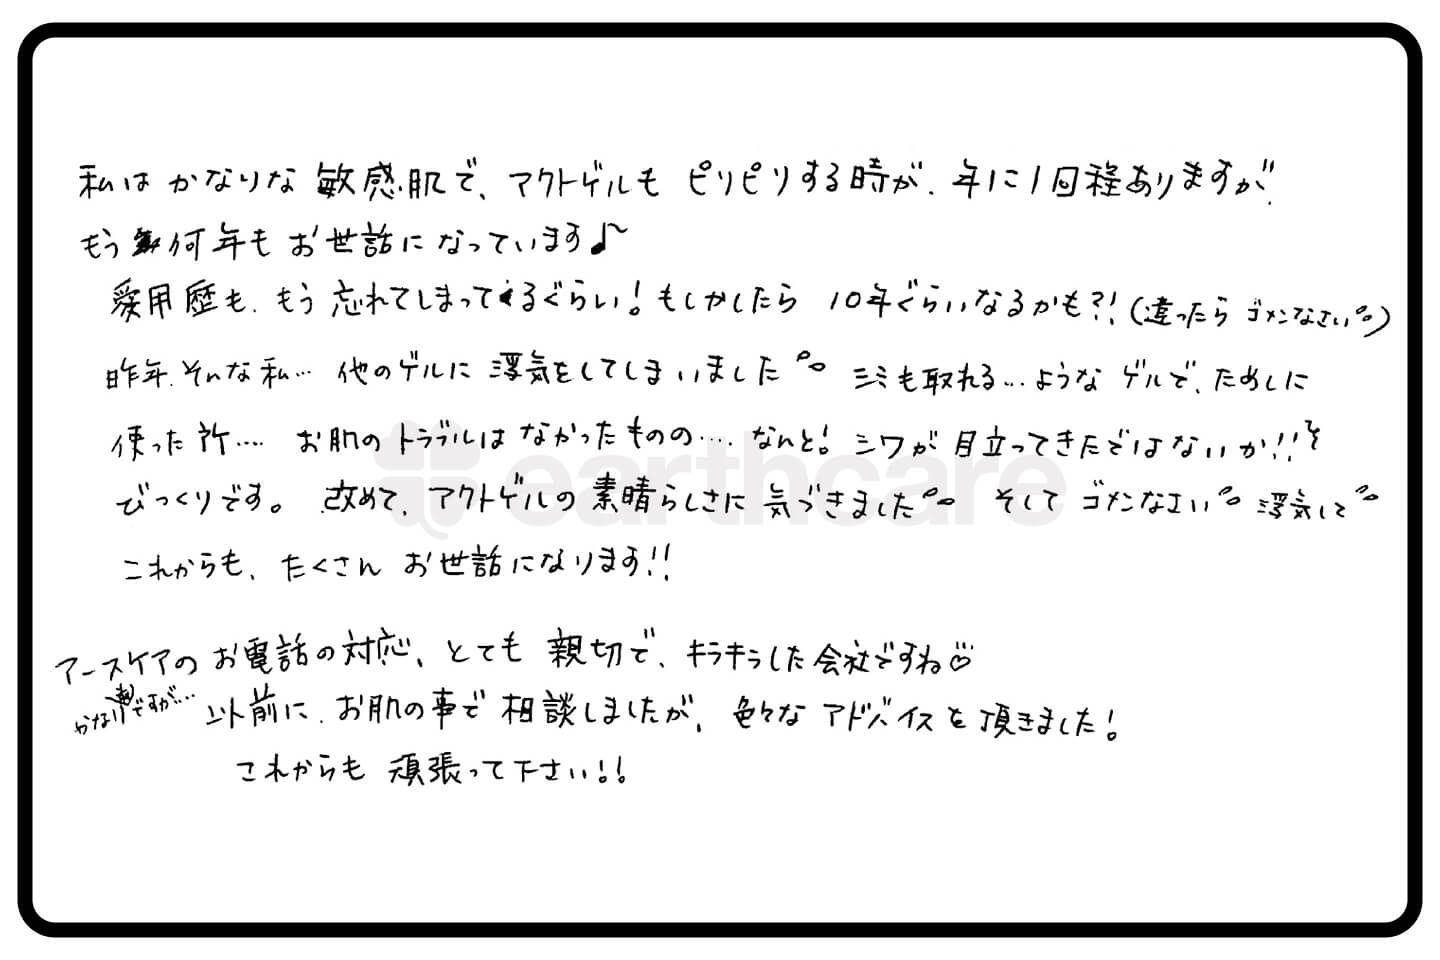 私はかなりな敏感肌で、アクトゲルもピリピリする時が、年に1回程ありますが、
もう何年もお世話になっています♪
愛用歴も、もう忘れてしまってくるぐらい!もしかしたら 10年ぐらいなるかも?!(違ったら ゴメンなさい°°)
昨年、そんな私… 他のゲルに 浮気をしてしまいました°° シミも取れる…ようなゲルで、ためしに
使った所…. お肌のトラブルはなかったものの…. なんと! シワが目立ってきたではないか!!
びっくりです。 改めて、アクトゲルの素晴らしさに気づきました°° そして ゴメンなさい°° 浮気して°°
これからも、たくさん お世話になります!!
アースケアのお電話の対応、とても 親切で、キラキラした会社ですね♡
かなり前ですが… 以前に、お肌の事で相談しましたが、色々なアドバイスを頂きました!
これからも 頑張って下さい!!
earthcare